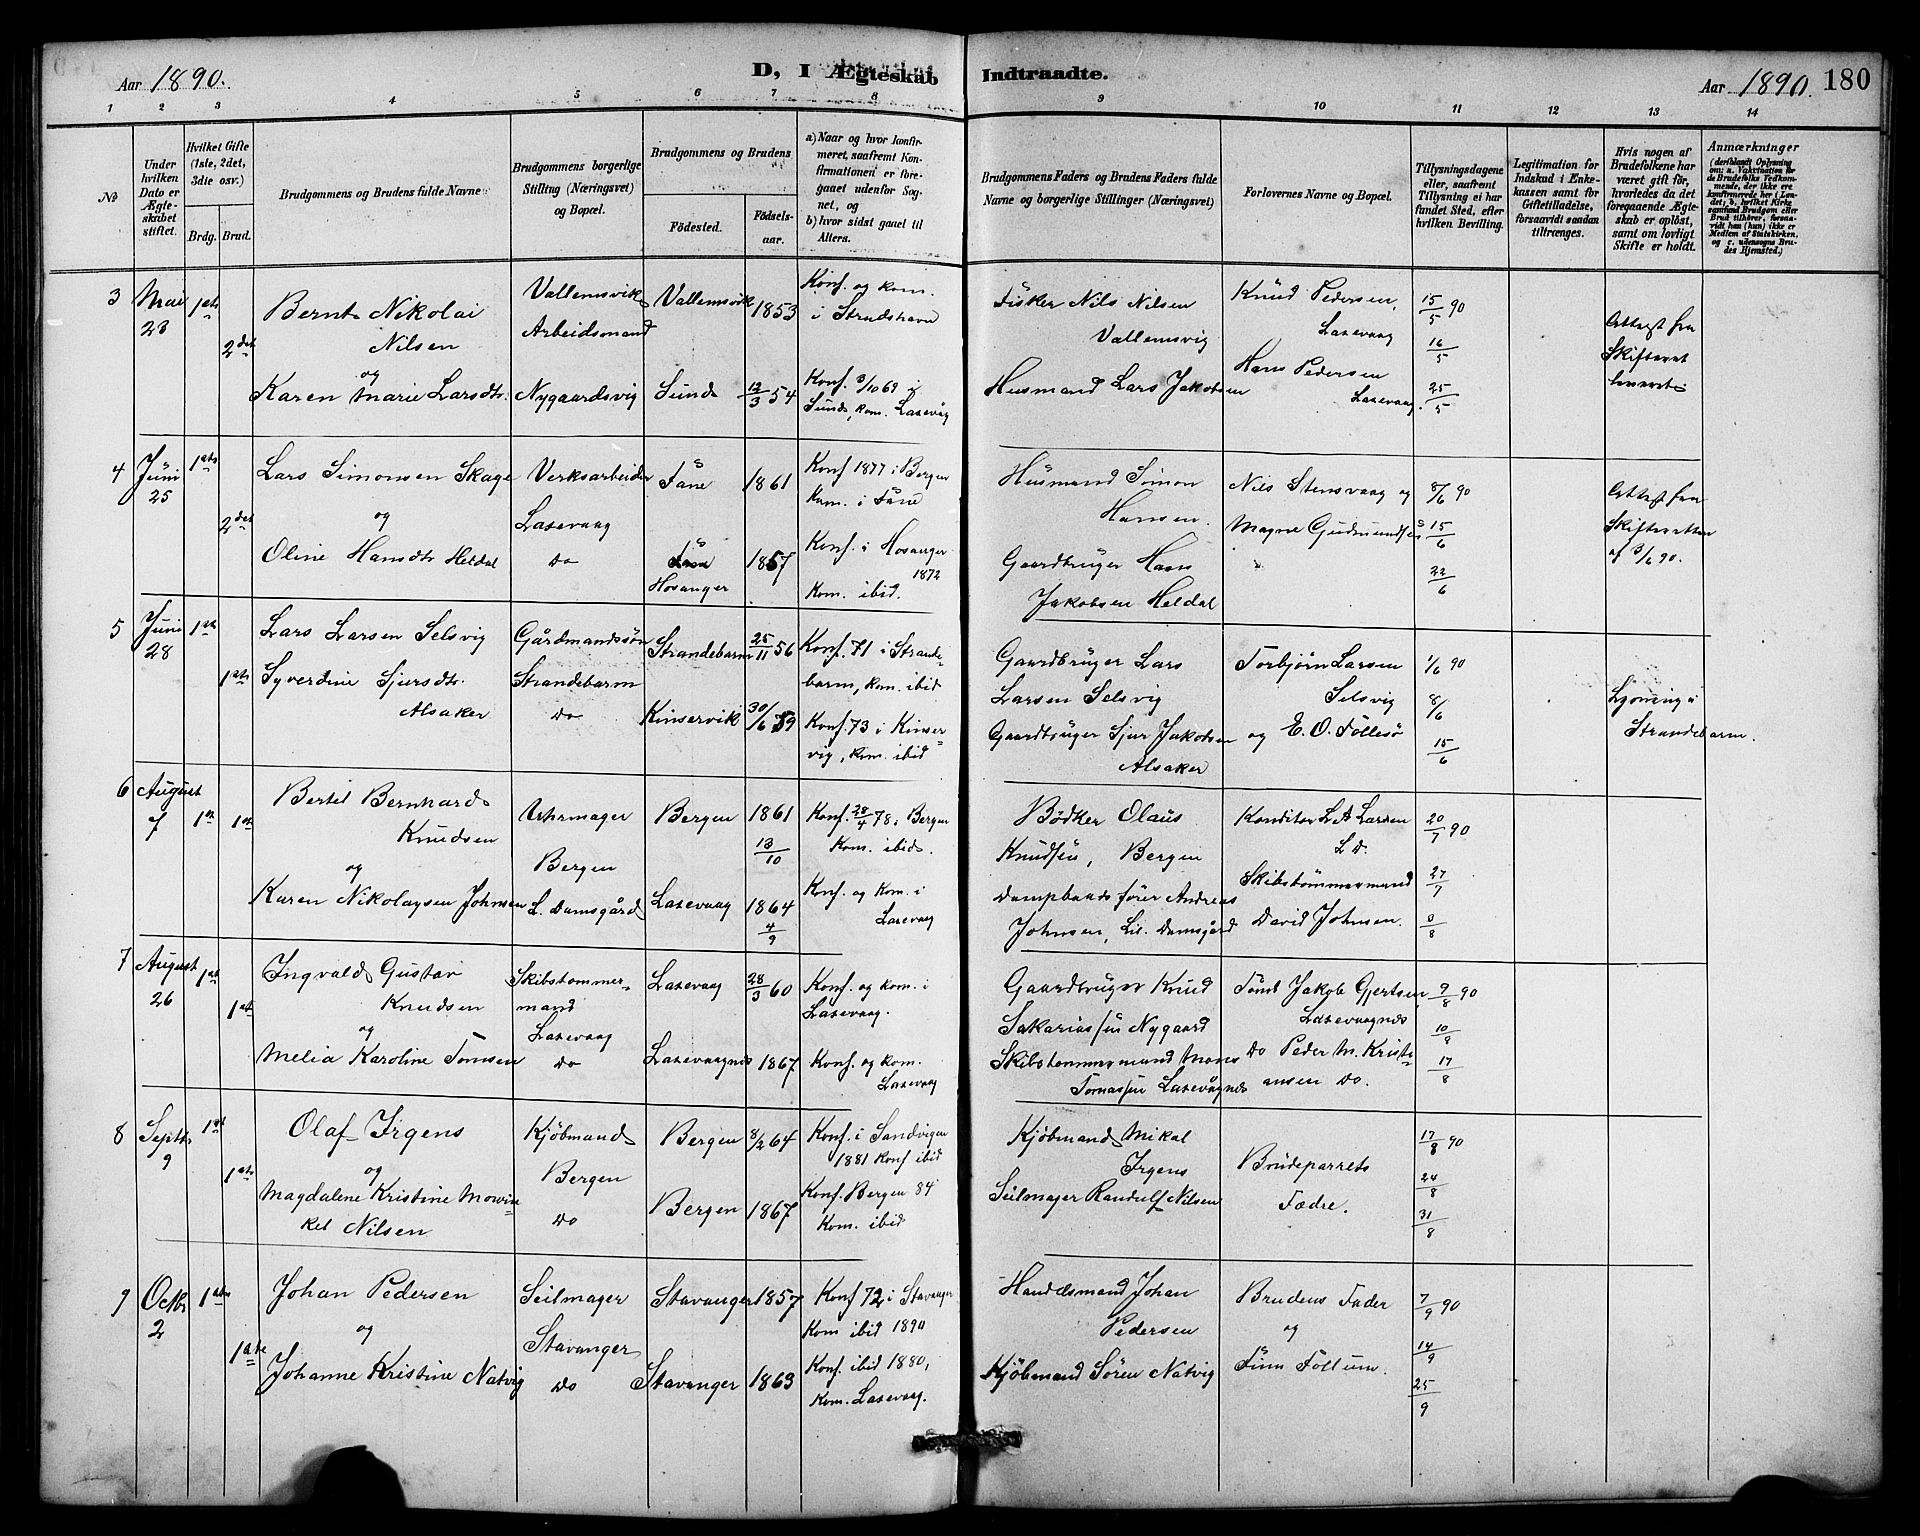 Aar 1890.
D, I Ægteskab Indtraadte.
Aar 1890. 180
1 2 3 4 5 6 7 8 9 10 11 12 13 14
№
Under hvilken Dato er Ægteskabet stiftet.
Hvilket Gifte (1ste, 2det, 3die osv.)
Brdg. Brud.
Brudgommens og Brudens fulde Navne
Brudgommens borgerlige Stilling (Næringsvei) og Bopæl.
Brudgommens og Brudens
Fødested. Fødselsaar.
a) Naar og hvor konfirmeret, saafremt Konfirmationen er foregaaet udenfor Sognet, og
b) hvor sidst gaaet til Alters.
Brudgommens Faders og Brudens Faders fulde Navne og borgerlige Stillinger (Næringsvei)
Forlovernes Navne og Bopæl.
Tillysningsdagene eller, saafremt Tillysning ei har fundet Sted, efter hvilken Bevilling.
Legitimation for Indskud i Enkekassen samt for Giftetilladelse, forsaavidt saadan tiltrænges.
Hvis nogen af Brudefolkene har været gift før, hvorledes da det foregaaende Ægteskab er opløst, samt om lovligt Skifte er holdt.
Anmærkninger
3 Mai 1ste Vallemsvik Vallemsvik 1853 Konf. og kom.
23 Bernt Nikolai Arbeidsmand i Strudshavn
2det Nilsen
og
Karen Marie Larsdtr. Nygaardsvig Sund 12/3 54 Konf. 3/10 69 i
Sund, kom. Laxevåg
Fisker Nils Nilsen Knud Pedersen, 15/5 90
Vallemsvig Laxevaag 16/5
Husmand Lars Jakobsen Hans Pedersen 25/5
Laxevaag.
Attest fra
Skifteret
leveret
4 Juni 1ste Lars Simonsen Skage Verksarbeider Fane 1861 Konf 1877 i Bergen
25 Kom. i Fane
2det og Laxevaag
Oline Hansdtr Heldal Do Hosanger 1857 Konf. i Hosanger
1872
Kom. ibid.
Husmand Simon Nils Stensvaag og 8/6 90
Hansen. Magne Gudmundsen 15/6
Gaardbruger Hans 22/6
Jakobsen Heldal
Attest fra
Skifteretten
af 3/6 90.
5 Juni 1ste Lars Larsen Selsvig Gårdmandssøn Strandebarm 25/11 56 Konf. 71 i Strande-
28 1ste Syverdine Sjursdtr. Strandebarm barm, kom. ibid
Alsaker Do Kinservik 30/6 59 Konf. 73 i Kinser-
vig, kom. ibid
Gaardbruger Lars Torbjørn Larsen 1/6 90
Larsen Selsvig Selsvig 8/6
Gaardbruger Sjur Jakobsen og E. O. Follesø 15/6
Alsaker
Lysning i
Strandebarm.
6 August Bertel Bernhard Urmager Bergen 1861 Konf. 28/4 78 i Bergen
7 1ste 1ste Knudsen Bergen 13/10 Kom. ibid.
og
Karen Nikolaysen Johnsen L. Damsgård Laxevaag 1864 Konf. og Kom. i
4/9 Laxevaag
Bødker Olaus Konditor L A Larsen 20/7 90
Knudsen, Bergen L D.
Dampbaadsfører Andreas Skibstømmermand 27/7
Johnsen, Lil. Damsgård David Johnsen. 3/8
7 August 1ste Ingvald Gustav Skibstommer- Laxevaag 28/3 60 Konf. og kom. i
26 1ste Knudsen mand Laxevaag.
og Laxevaag
Melia Karoline Tomsen Do Laxevaagnes 1867 Konf. og kom.
Laxevaag
Gaardbruger Knud Jakob Gjertsen 9/8 90
Sakariassen Nygaard Laxevaagnes 10/8
Skibstommermand Mons Do Peder M. Kristi- 17/8
Tomassen Laxevågnes ansen Do.
8 Septb. 1ste Olaf Irgens Kjøbmand Bergen 8/2 64 Konf. i Sandvigen
9 1881 Konf ibid
1ste og Bergen
Magdalene Kristine Mowin- Do Bergen 1867 Konf. Bergen 84
kel Nilsen Kom. ibid
Kjøbmand Mikal 17/8 90
Irgens Brudeparrets 24/8
Seilmager Randulf Nilsen Fædre. 31/8
9 Octbr 1ste Johan Pedersen Seilmager Stavanger 1857 Konf 72 i Stavanger
2 og Stavanger Kom ibid 1890
1ste Johanne Kristine Natvig Do Stavanger 1863 Konf ibid 1880,
Kom. Laxevaag.
Handelsmand Johan Brudens Fader 7/9 90
Pedersen og 14/9
Kjøbmand Søren Natvig Finn Follum. 25/9